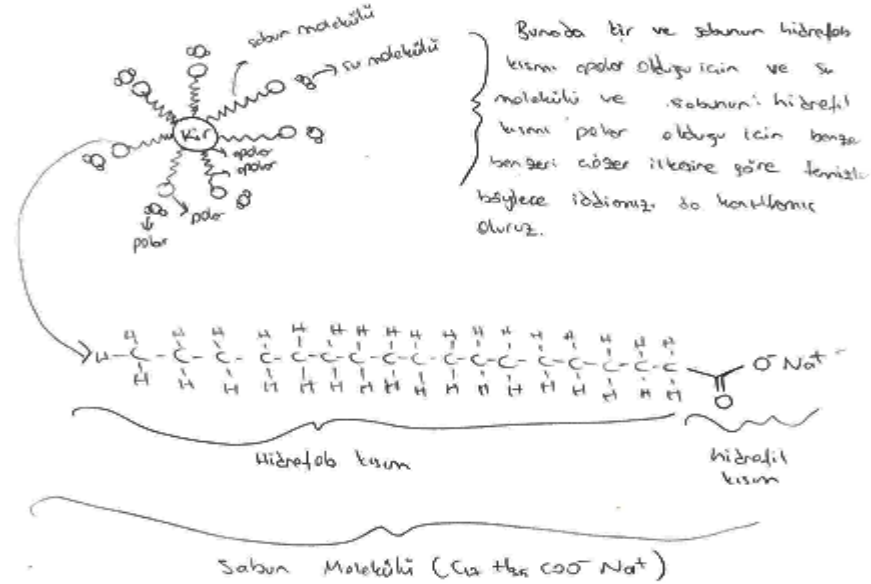 sabun molekülü
su molekülü
Kir
apolar
apolar
polar
polar
Burada kir ve sabunun hidrofob
kısmı apolar olduğu için ve su
molekülü ve sabunun hidrofil
kısmı polar olduğu için benze
benzeri çözer ilkesine göre temizle
böylece iddiamızı da kanıtlamış
oluruz.
H H H H H H H H H H H H H H H H
H-C-C-C-C-C-C-C-C-C-C-C-C-C-C-C-C
H H H H H H H H H H H H H H H H
O⁻ Na⁺
O
Hidrofob kısım
hidrofil
kısım
Sabun Molekülü (C17 H35 COO⁻ Na⁺)